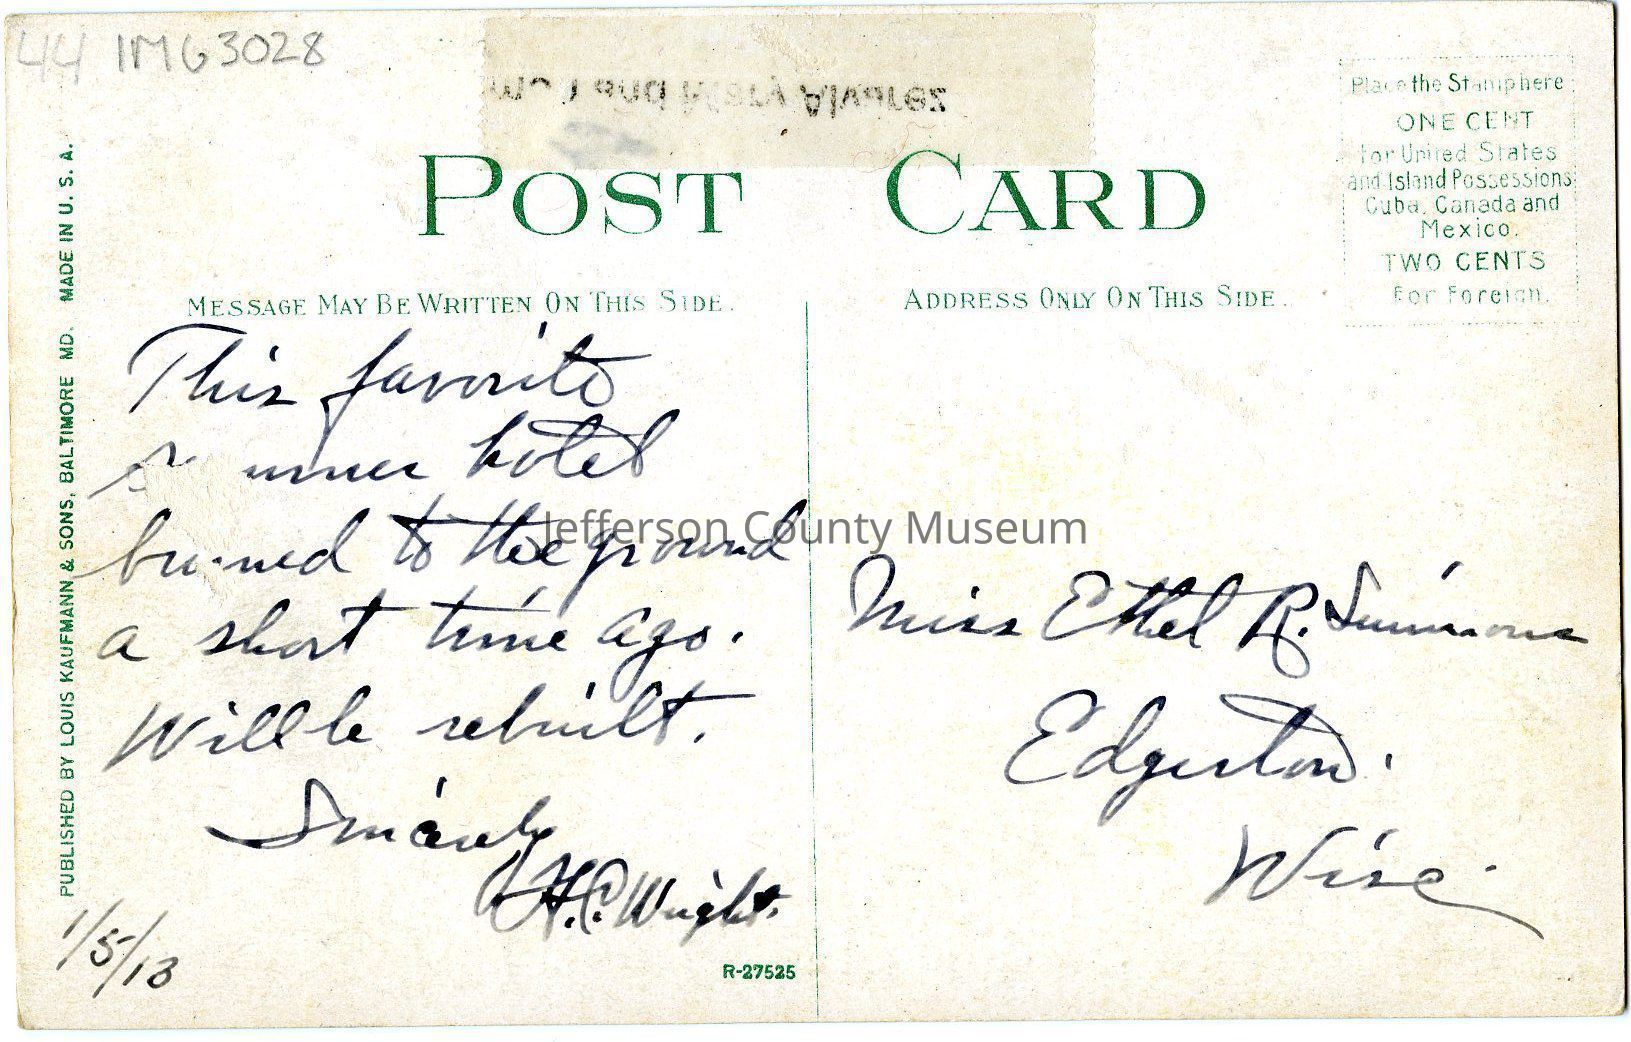 44 1MG3028
and Mary Alvarez
POST CARD
Place the Stamp here
ONE CENT
for United States
and Island Possessions
Cuba, Canada and
Mexico.
TWO CENTS
For Foreign.
MESSAGE MAY BE WRITTEN ON THIS SIDE.
ADDRESS ONLY ON THIS SIDE.
PUBLISHED BY LOUIS KAUFMANN & SONS, BALTIMORE MD. MADE IN U. S. A.
This favorite
summer hotel
burned to the ground
a short time ago.
Will be rebuilt.
Sincerely
H.C. Wright.
1/5/13
Miss Ethel R. Simmons
Edgerton.
Wisc.
R-27525
Jefferson County Museum